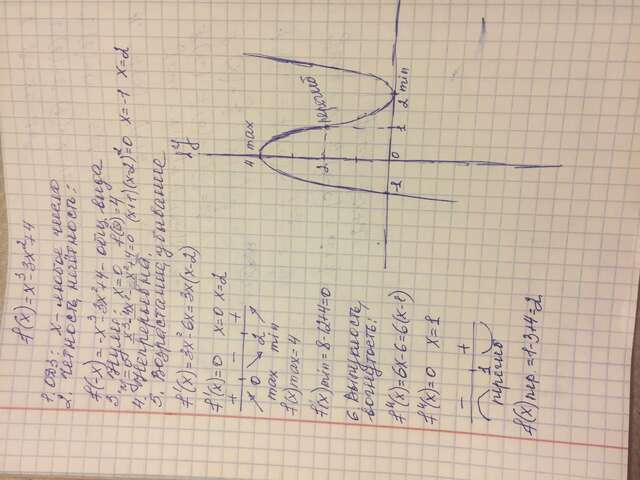 f(x)=x³-3x²+4
1. ОДЗ: x - любое число
2. Четность, нечётность:
f(-x)=-x³-3x²+4 - общ вида
3. Нули: x=0 f(0)=4
x³-3x²+4=0 (x+1)(x-2)²=0 x=-1 x=2
4. Непрерывна
5. Возрастание, убывание
f'(x)=3x²-6x=3x(x-2)
f'(x)=0 x=0 x=2
+ - +
0 2
max min
f(x)max=4
f(x)min=8-12+4=0
6. Выпуклость,
вогнутость:
f''(x)=6x-6=6(x-1)
f''(x)=0 x=1
- +
1
перегиб
f(x)пер.=1-3+4=2
y
4 max
2 перегиб
-1 0 1 2 min